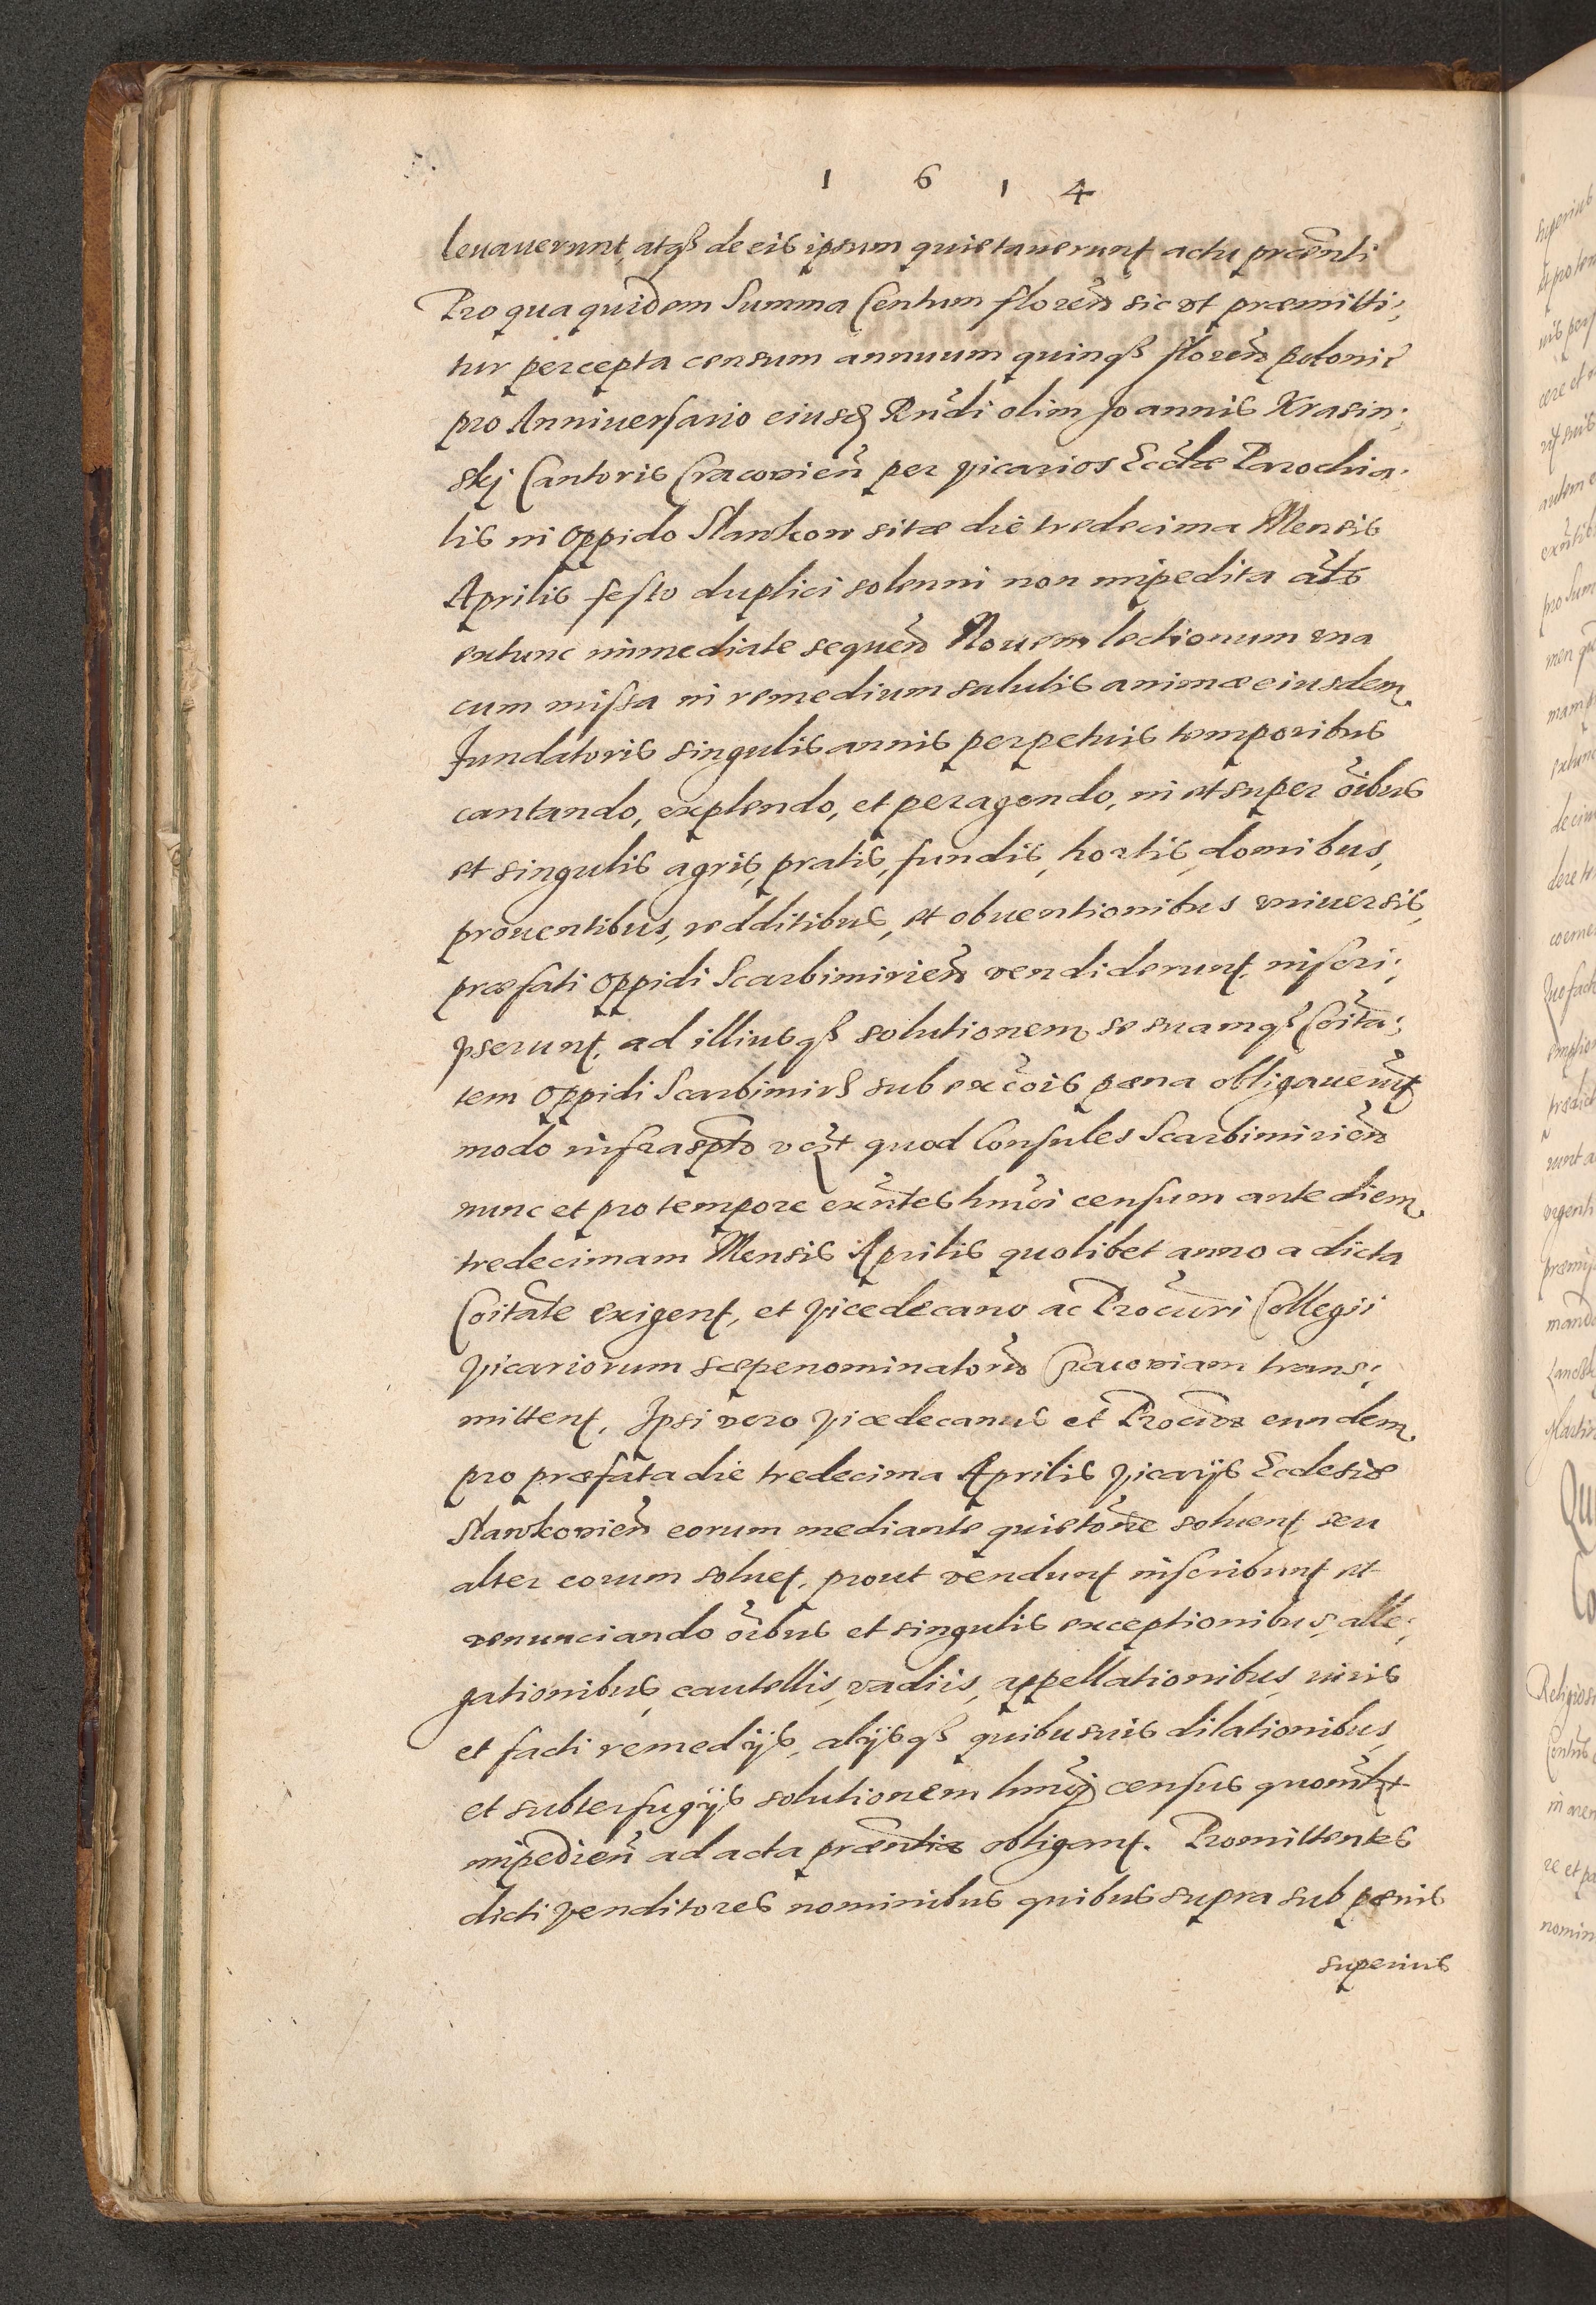 1 6 1 4
leuauerunt, atqꝫ de eis ipsum quietauerunt actu præñti
Pro qua quidem Summa Centum floreñ sic vt præmitti;
tur percepta censum annuum quinqꝫ floreñ poloniē
pro Anniuersario eiusdꝫ Rñdi olim Joannis Krasin;
skj Cantoris Cracovieñ per Vicarios Eccłæ Parochia;
lis in Oppido Slawkow sitæ die tredecima Mensis
Aprilis festo duplici solenni non impedita als̃
extunc immediate sequeñ Nouem lectionum vna
cum missa in remedium salutis animæ eiusdem
fundatoris singulis annis perpetuis temporibus
cantando, explendo, et peragendo, in et super oĩbus
et singulis agris, pratis, fundis, hortis, domibus,
prouentibus, redditibus, et obuentionibus vniuersis,
præfati Oppidi Scarbimirieñ vendiderunt, inscri;
pserunt, ad illiusqꝫ solutionem se suamqꝫ Coĩta;
tem Oppidi Scarbimirꝫ sub excoĩs pæna obligaueruñt
modo infraspto vꝫt quod Consules Scarbimirieñ
nunc et pro tempore exñtes hmõi censum ante diem
tredecimam Mensis Aprilis quolibet anno a dicta
Coĩtate exigent, et Vicedecano ac Procuri Collegii
Vicariorum sæpenominatorũ Cracoviam trans;
mittent, Ipsi vero Vicedecanus et Procur̃ eundem
pro præfata die tredecima Aprilis Vicarijs Ecclesiæ
Slawkovieñ eorum mediante quietõne soluent, seu
alter eorum soluet, prout vendunt inscribunt et
renunciando oĩbus et singulis exceptionibus, alle;
gationibus, cautellis, vadiis, appellationibus, iuris
et facti remedijs, alijsqꝫ quibusuis dilationibus,
et subterfugijs solutionem hmõi census quomõlꝫt
impedieñ ad acta præñtia obligant. Promittentes
dicti Venditores nominibus quibus supra sub pænis
superius